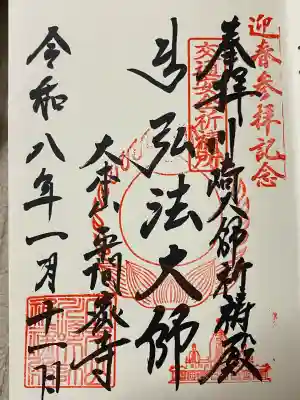 迎春参拝記念
奉拝川崎大師祈祷殿
交通安全祈祷所
弘法大師
大本山平間寺
令和八年一月十一日